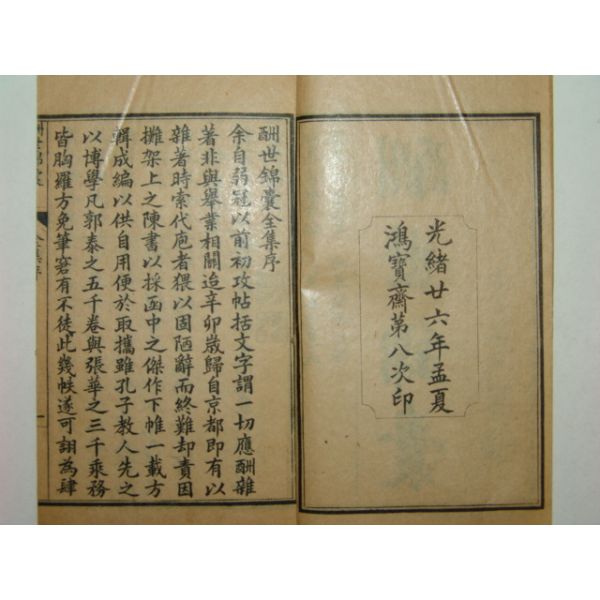 光緒廿六年孟夏
鴻寶齋第八次印
酬世錦囊全集序
余自弱冠以前初攻帖括文字謂一切應酬雜
著非與舉業相關迨辛卯歲歸自京都即有以
雜著時索代庖者猥以固陋辭而終難却責因
攤架上之陳書以採函中之傑作下帷一載方
輯成編以供自用便於取攜雖孔子教人先之
以博學凡郭泰之五千卷與張華之三千乘務
皆胸羅方免筆窘有不徒此幾帙遂可詡為肆